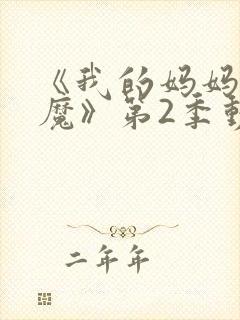 《我的妈妈
魔》第2季
二年年